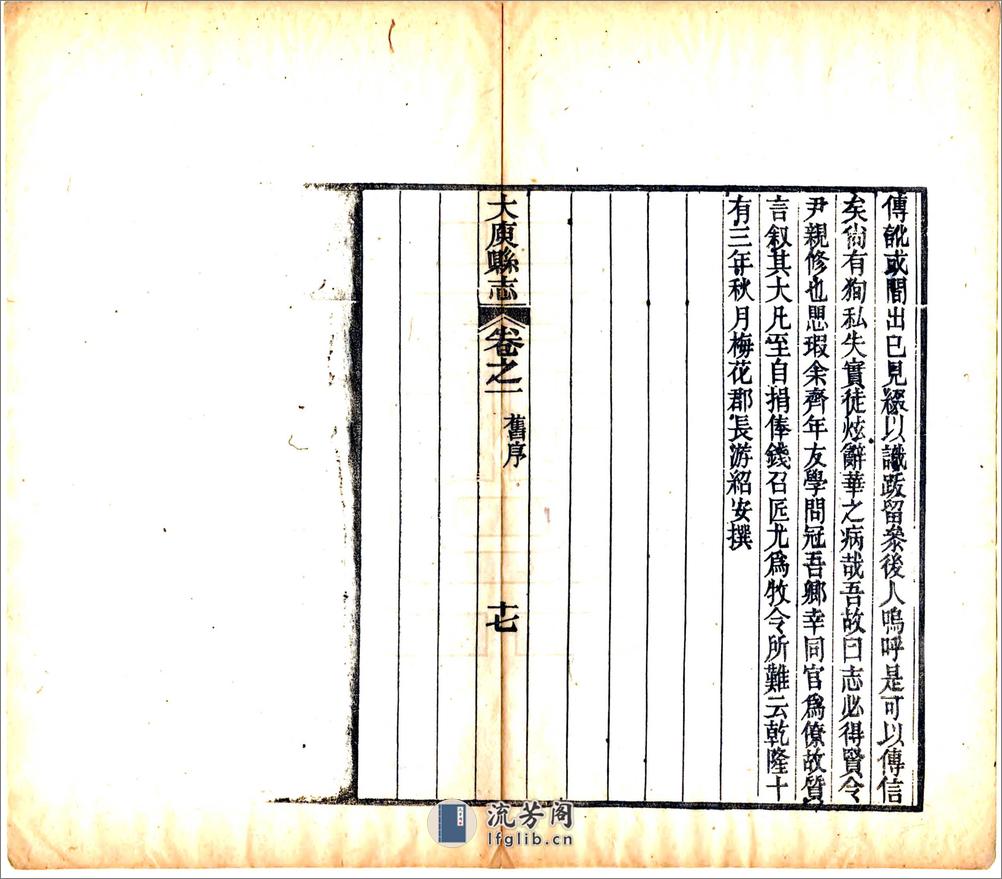 傳訛或間出已見綴以識跋留叅後人嗚呼是可以傳信
矣尙有狥私失實徒炫辭華之病哉吾故曰志必得賢令
尹親修也思瑕余齊年友學問冠吾鄉幸同官爲僚故質
言叙其大凡至自捐俸錢召匠尤爲牧令所難云乾隆十
有三年秋月梅花郡長游紹安撰
大庾縣志 卷之一 舊序 十七
流芳阁
lfglib.cn